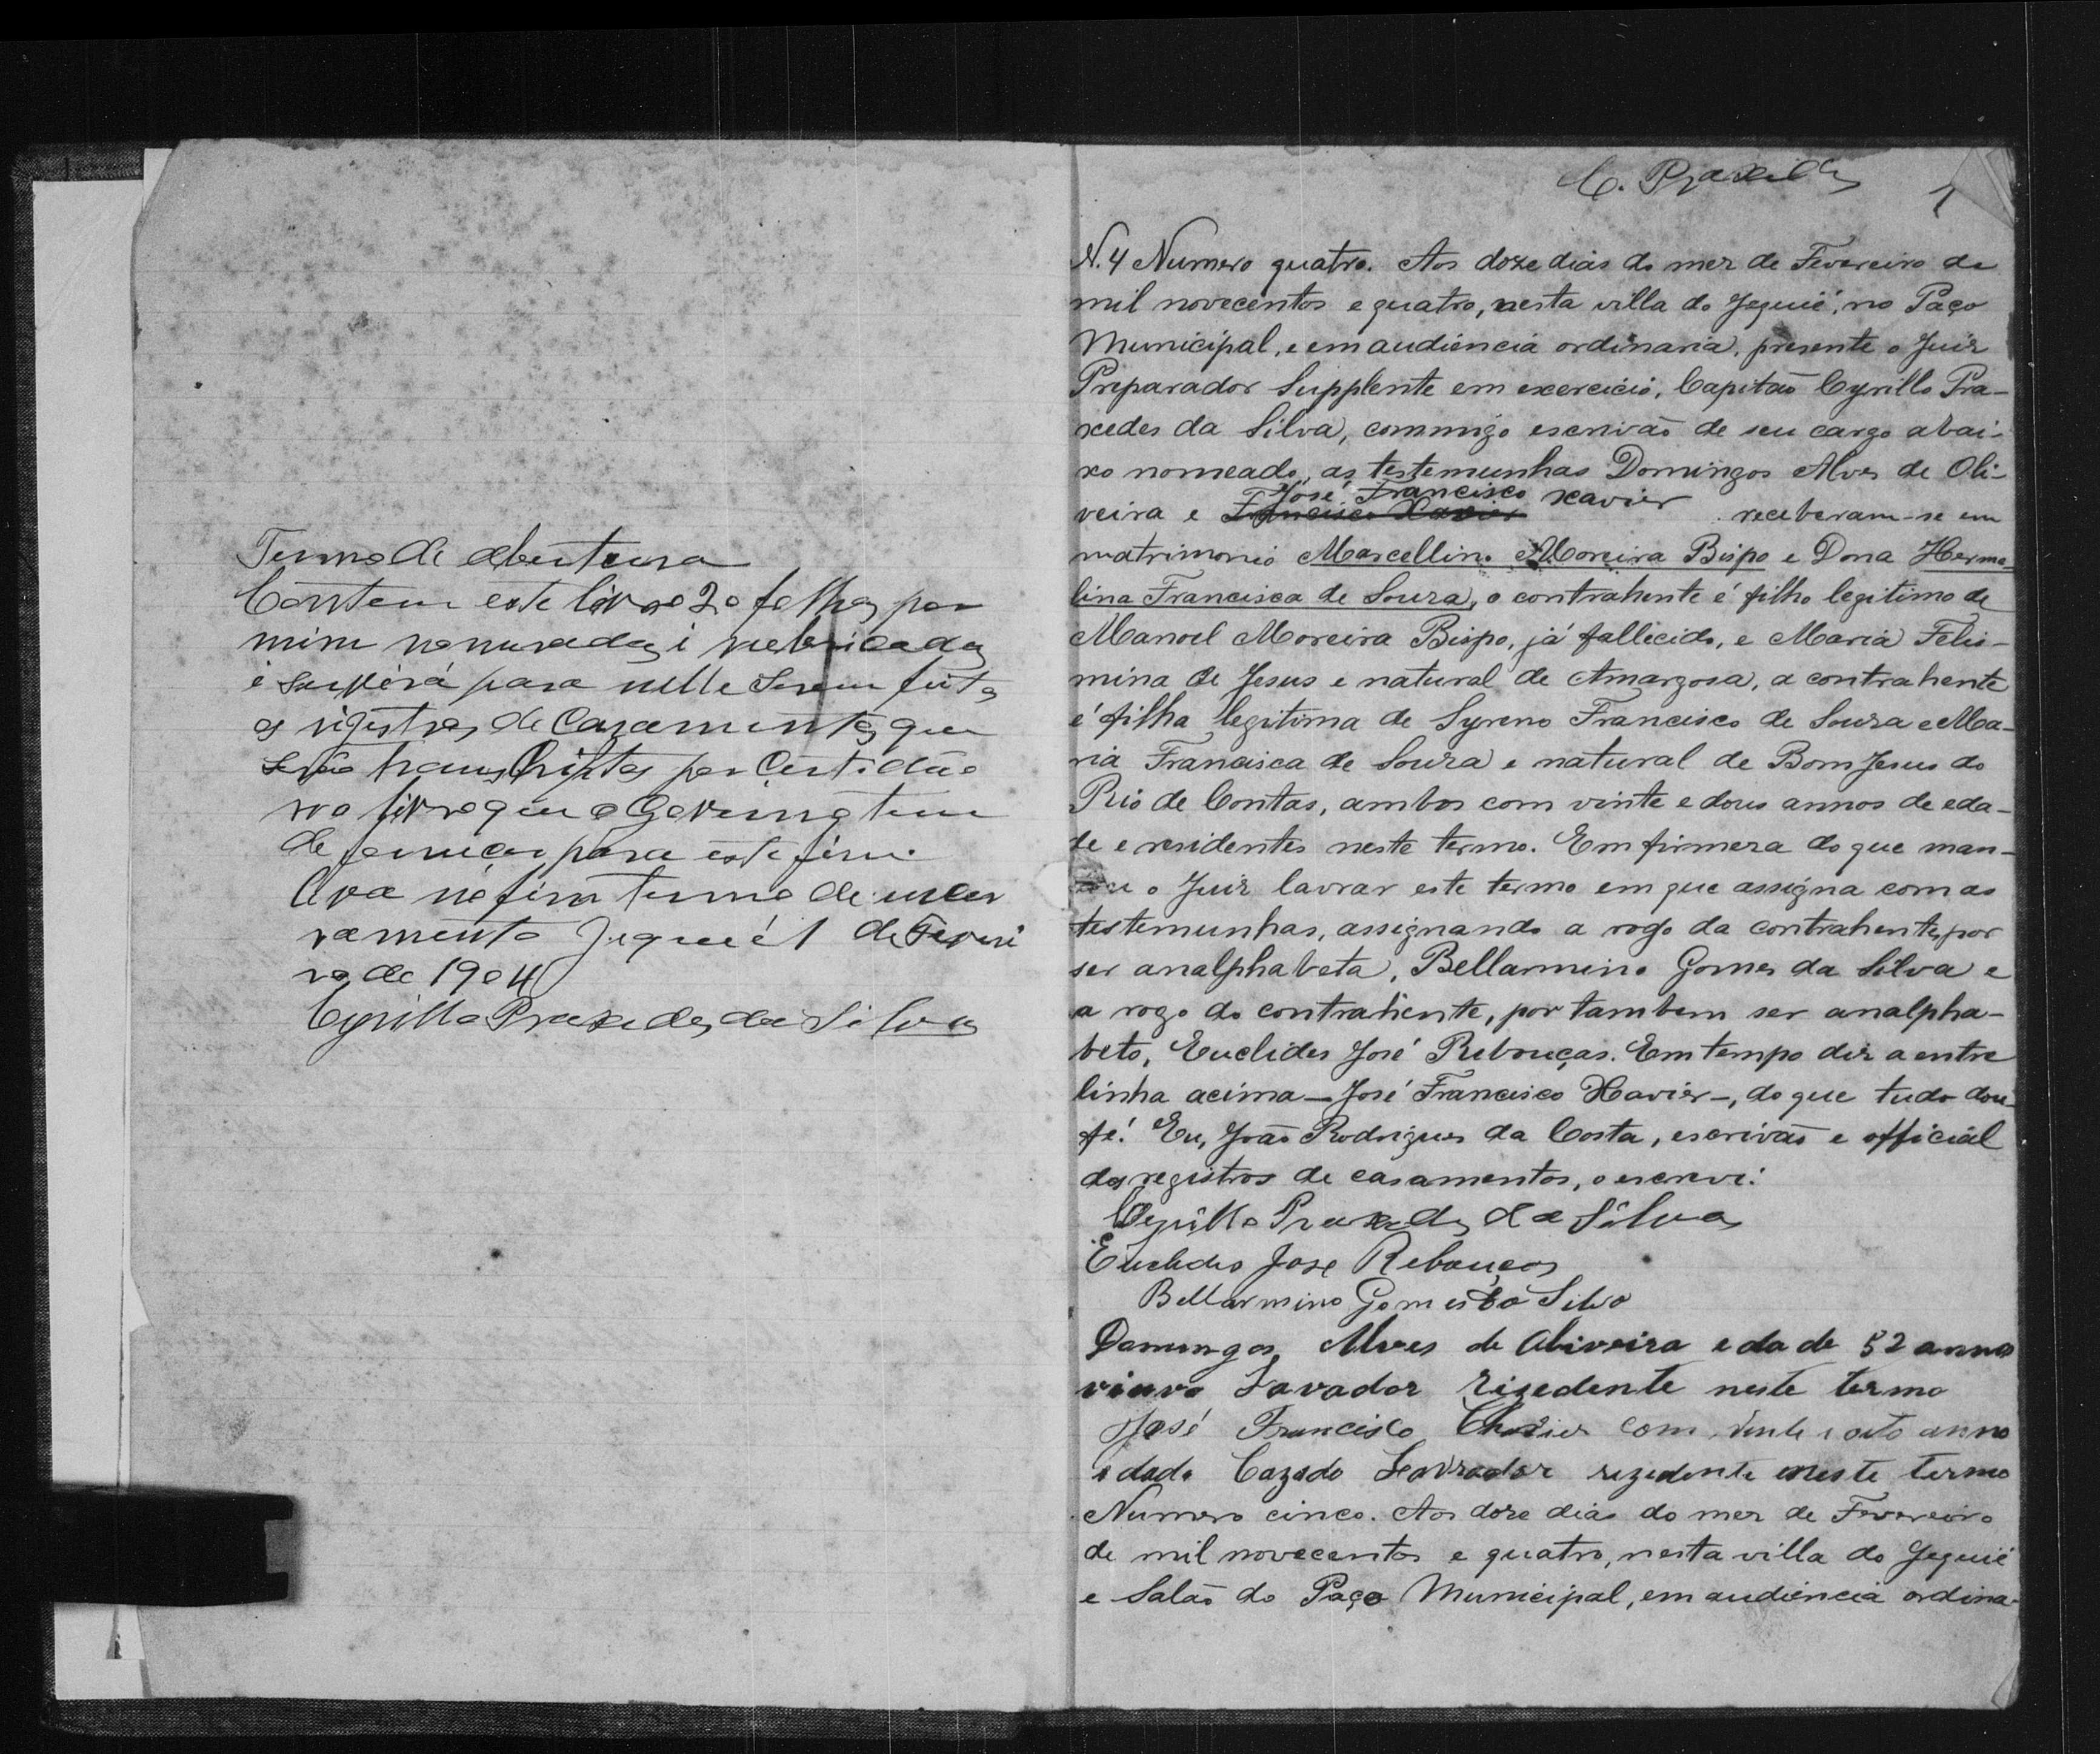 Termo de abertura
Contem este livro 20 folhas por
mim numeradas i rubricadas
e servirá para nelle serem feitos
os rigistros de Casamentos que
serão transcriptos por Certidão
no livro que o Governo tem
de fornicer para este fim.
Leva no fim termo de incer
ramento Jequié 1 de Feverei
ro de 1904
Cyrillo Praxedes da Silva
C. Praxedes
1
N. 4 Numero quatro. Aos doze dias do mez de Fevereiro de
mil novecentos e quatro, nesta villa do Jequié, no Paço
Municipal, e em audiencia ordinaria, presente o Juiz
Preparador Supplente em exercicio, Capitão Cyrillo Pra-
xedes da Silva, commigo escrivão de seu cargo abai-
xo nomeado, as testemunhas Domingos Alves de Oli-
José Francisco Xavier
veira e Francisco Xavier receberam-se em
matrimonio Marcellino Moreira Bispo e Dona Herme-
lina Francisca de Souza, o contrahente é filho legitimo de
Manoel Moreira Bispo, já fallecido, e Maria Felis-
mina de Jesus e natural de Amargosa, a contrahente
é filha legitima de Syreno Francisco de Souza e Ma-
ria Francisca de Souza e natural de Bom Jesus do
Rio de Contas, ambos com vinte e dous annos de eda-
de e residentes neste termo. Em firmeza do que man-
dou o Juiz lavrar este termo em que assigna com as
testemunhas, assignando a rogo da contrahente, por
ser analphabeta, Bellarmino Gomes da Silva e
a rogo do contrahente, por tambem ser analpha-
beto, Euclides José Rebouças. Em tempo diz a entre
linha acima — José Francisco Xavier —, do que tudo dou
fé. Eu, João Rodrigues da Costa, escrivão e official
dos registros de casamentos, o escrevi.
Cyrillo Praxedes da Silva
Euclides Jose Rebouças
Bellarmino Gomes da Silva
Domingos Alves de Oliveira edade 52 annos
viuvo Lavador rizedente neste termo
José Francisco Chavier com vinte i oito anno
idade Cazado Lavrador rezedente neste termo
Numero cinco. Aos doze dias do mez de Fevereiro
de mil novecentos e quatro, nesta villa do Jequié
e Salão do Paço Municipal, em audiencia ordina-